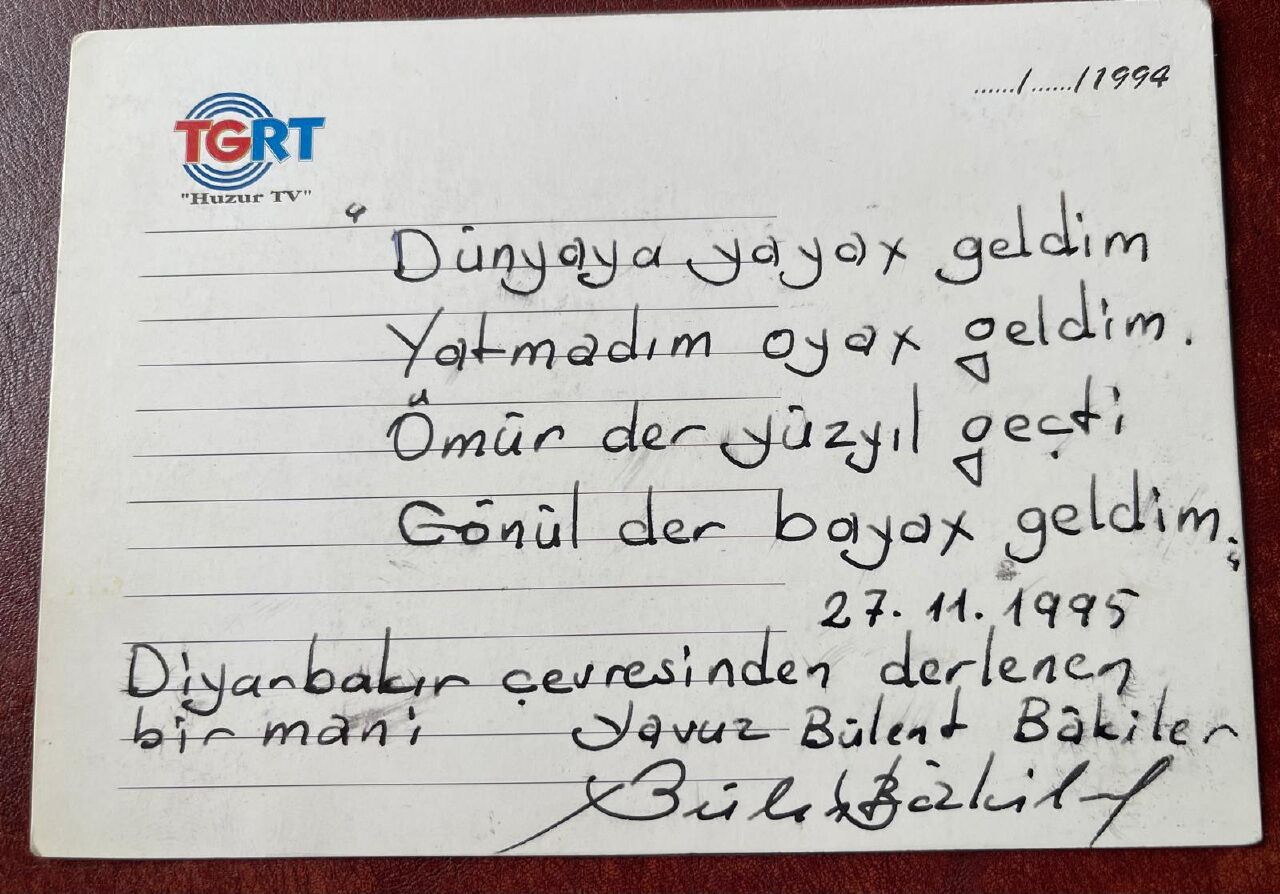 ....../....../1994
TGRT
"Huzur TV"
" Dünyaya yayax geldim
Yatmadım oyax geldim.
Ömür der yüzyıl geçti
Gönül der bayax geldim."
27.11.1995
Diyarbakır çevresinden derlenen
bir mani Yavuz Bülent Bâkiler